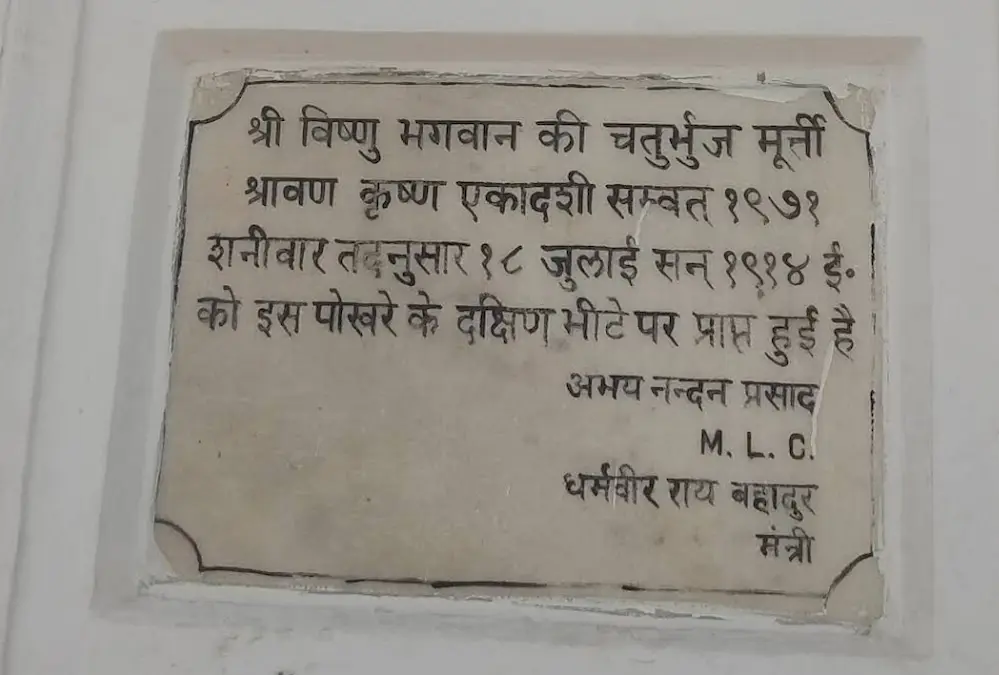 श्री विष्णु भगवान की चतुर्भुज मूर्त्ती
श्रावण कृष्ण एकादशी सम्वत् १९७१
शनीवार तदनुसार १८ जुलाई सन् १९१४ ई॰
को इस पोखरे के दक्षिण भीटे पर प्राप्त हुई है
अभय नन्दन प्रसाद
M. L. C.
धर्मवीर राय बहादुर
मंत्री